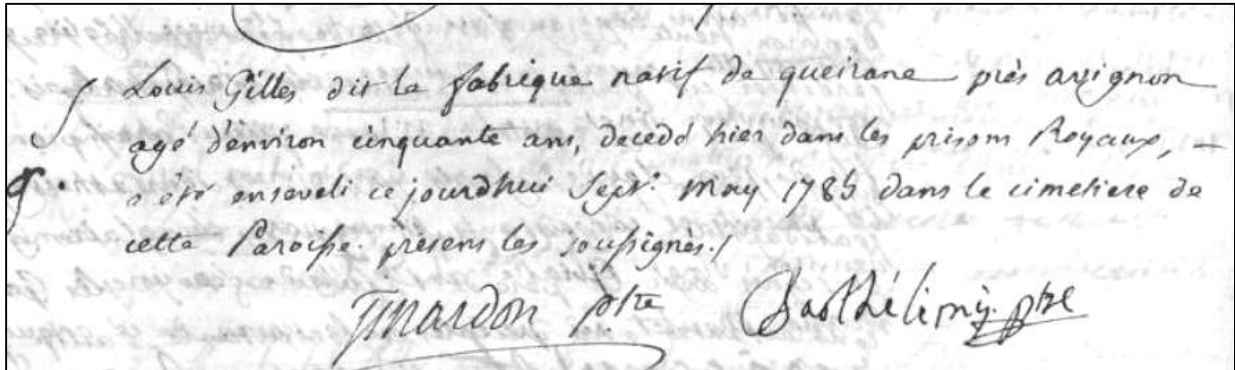 Louis Gilles dit la fabrique natif de queirane près avignon
agé d'environ cinquante ans, decedé hier dans les prisons Royaux,
a été enseveli ce jourdhui sept.e may 1785 dans le cimetiere de
cette Paroisse. présens les soussignés./
ptre Barthélemy ptre